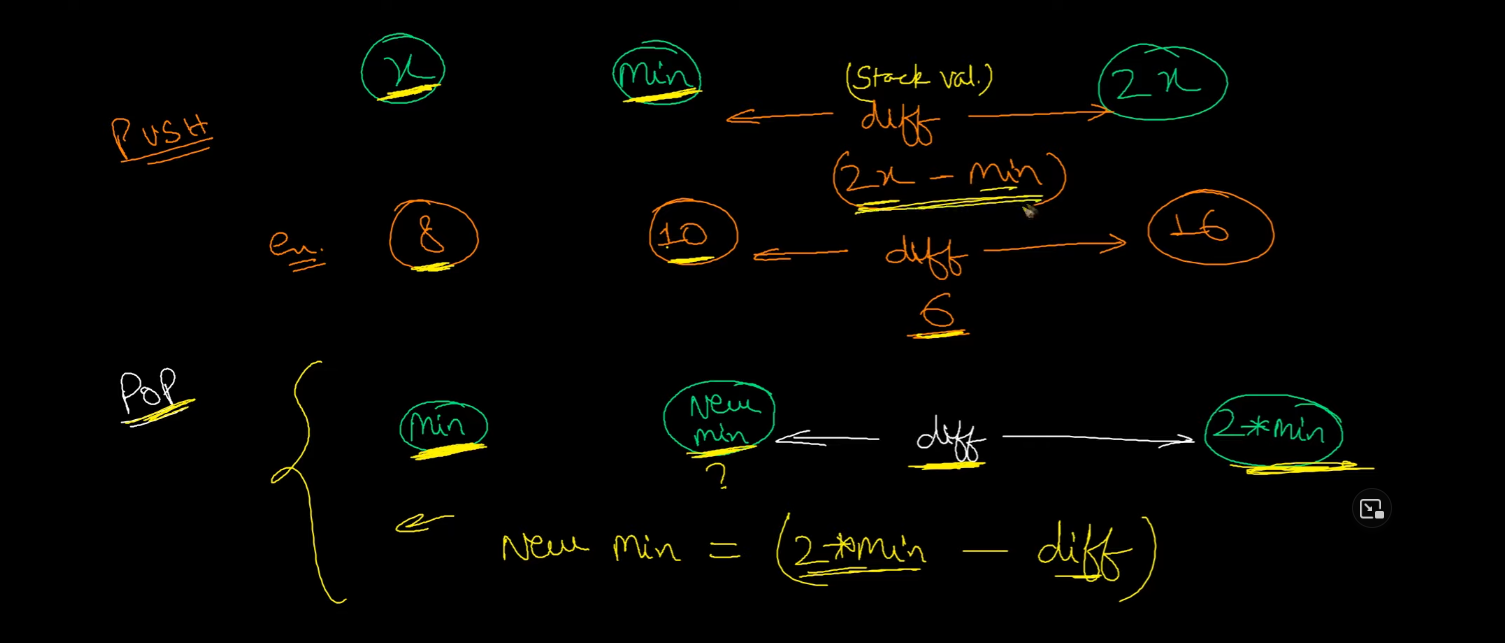 x min (Stack val.) 2x
PUSH diff
(2x - min)
ex. 8 10 diff 16
6
POP min New min diff 2*min
?
New min = (2*min - diff)